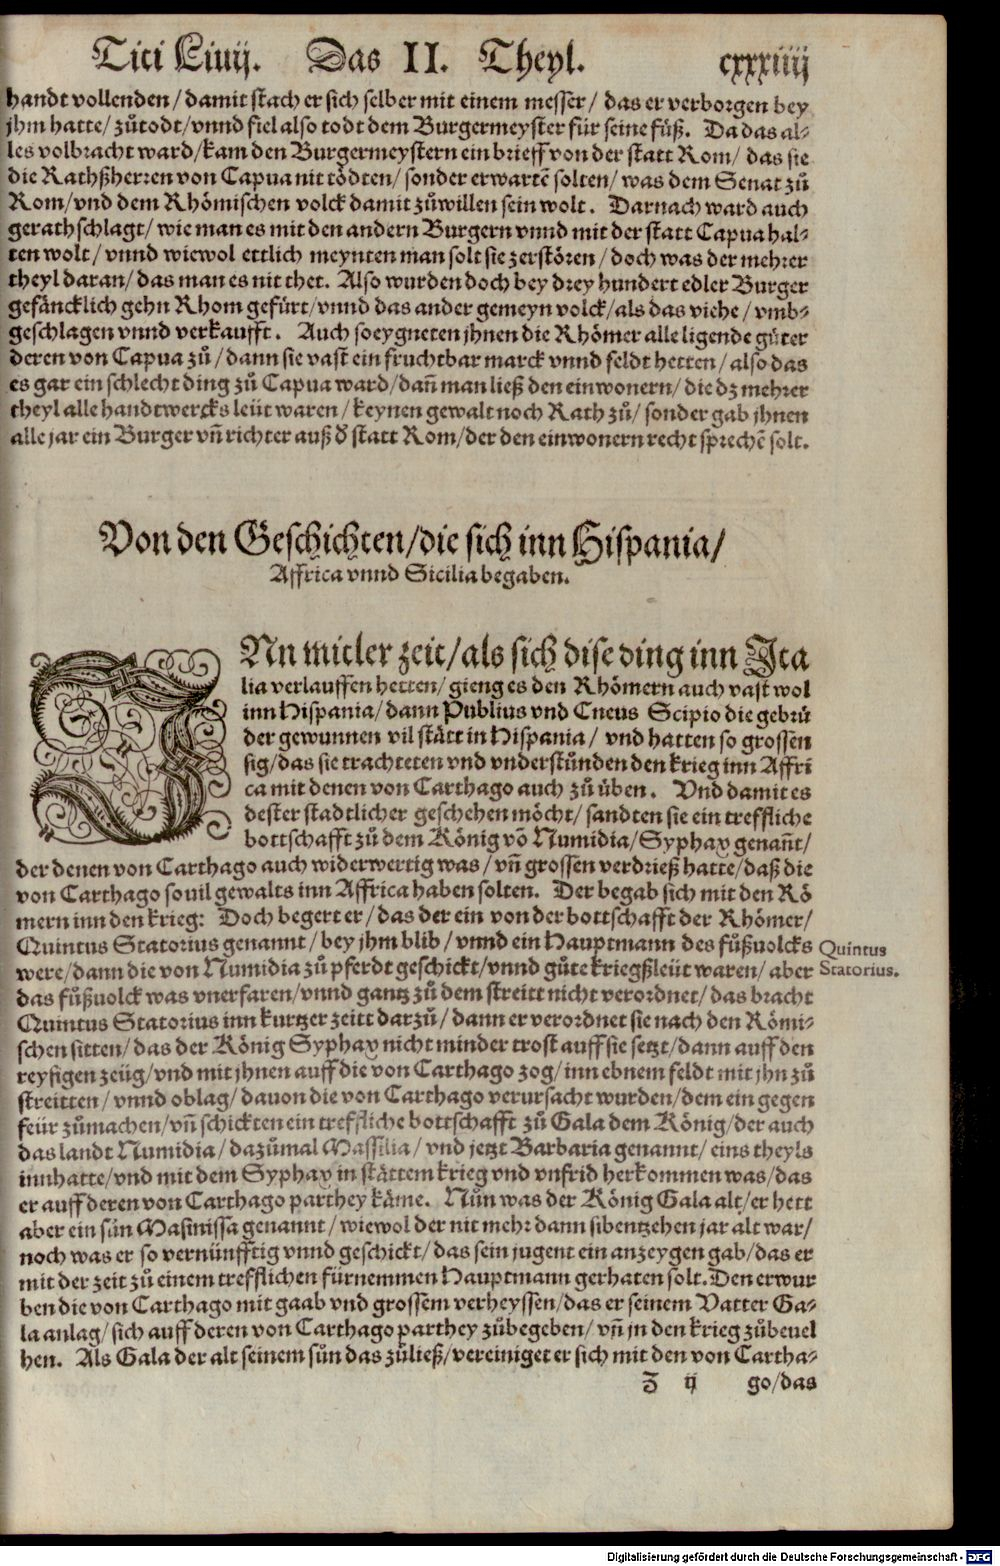 Titi Liuij. Das II. Theyl. cxxxiiij
handt vollenden/ damit stach er sich selber mit einem messer/ das er verborgen bey
jhm hatte/ zůtodt/ vnnd fiel also todt dem Burgermeyster für seine füß. Da das al⸗
les volbracht ward/ kam den Burgermeystern ein brieff von der statt Rom/ das sie
die Rathßherren von Capua nit tödten/ sonder erwartē solten/ was dem Senat zů
Rom/ vnd dem Rhömischen volck damit zůwillen sein wolt. Darnach ward auch
gerathschlagt/ wie man es mit den andern Burgern vnnd mit der statt Capua hal⸗
ten wolt/ vnnd wiewol ettlich meynten man solt sie zerstören/ doch was der mehrer
theyl daran/ das man es nit thet. Also wurden doch bey drey hundert edler Burger
gefäncklich gehn Rhom gefürt/ vnnd das ander gemeyn volck/ als das viehe/ vmb⸗
geschlagen vnnd verkaufft. Auch soeygneten jhnen die Rhömer alle ligende güter
deren von Capua zů/ dann sie vast ein fruchtbar marck vnnd feldt hetten/ also das
es gar ein schlecht ding zů Capua ward/ dañ man ließ den einwonern/ die dz mehrer
theyl alle handtwercks leüt waren/ keynen gewalt noch Rath zů/ sonder gab jhnen
alle jar ein Burger vñ richter auß d̃ statt Rom/ der den einwonern recht sprechē solt.
Von den Geschichten/ die sich inn Hispania/
Affrica vnnd Sicilia begaben.
INn mitler zeit/ als sich dise ding inn Ita
lia verlauffen hetten/ gieng es den Rhömern auch vast wol
inn Hispania/ dann Publius vnd Cneus Scipio die gebrü
der gewunnen vil stätt in Hispania/ vnd hatten so grossen
sig/ das sie trachteten vnd vnderstůnden den krieg inn Affri
ca mit denen von Carthago auch zů üben. Vnd damit es
dester stadtlicher geschehen möcht/ sandten sie ein treffliche
bottschafft zů dem König vō Numidia/ Syphax genañt/
der denen von Carthago auch widerwertig was/ vñ grossen verdrieß hatte/ daß die
von Carthago souil gewalts inn Affrica haben solten. Der begab sich mit den Rö
mern inn den krieg: Doch begert er/ das der ein von der bottschafft der Rhömer/
Quintus Statorius genannt/ bey jhm blib/ vnnd ein Hauptmann des fůßuolcks
were/ dann die von Numidia zů pferdt geschickt/ vnnd gůte kriegßleüt waren/ aber
Quintus
Statorius.
das fůßuolck was vnerfaren/ vnnd gantz zů dem streitt nicht verordnet/ das bracht
Quintus Statorius inn kurtzer zeitt darzů/ dann er verordnet sie nach den Römi⸗
schen sitten/ das der König Syphax nicht minder trost auff sie setzt/ dann auff den
reysigen zeüg/ vnd mit jhnen auff die von Carthago zog/ inn ebnem feldt mit jhn zů
streitten/ vnnd oblag/ dauon die von Carthago verursacht wurden/ dem ein gegen
feür zůmachen/ vñ schickten ein treffliche bottschafft zů Gala dem König/ der auch
das landt Numidia/ dazůmal Massilia/ vnd jetzt Barbaria genannt/ eins theyls
innhatte/ vnd mit dem Syphax in stättem krieg vnd vnfrid herkommen was/ das
er auff deren von Carthago parthey käme. Nůn was der König Gala alt/ er hett
aber ein sůn Masinissa genannt/ wiewol der nit mehr dann sibentzehen jar alt war/
noch was er so vernünfftig vnnd geschickt/ das sein jugent ein anzeygen gab/ das er
mit der zeit zů einem trefflichen fürnemmen Hauptmann gerhaten solt. Den erwur
ben die von Carthago mit gaab vnd grossem verheyssen/ das er seinem Vatter Ga⸗
la anlag/ sich auff deren von Carthago parthey zůbegeben/ vñ jn den krieg zůbeuel
hen. Als Gala der alt seinem sůn das zůließ/ vereiniget er sich mit den von Cartha⸗
Z ij go/ das
Digitalisierung gefördert durch die Deutsche Forschungsgemeinschaft - DFG